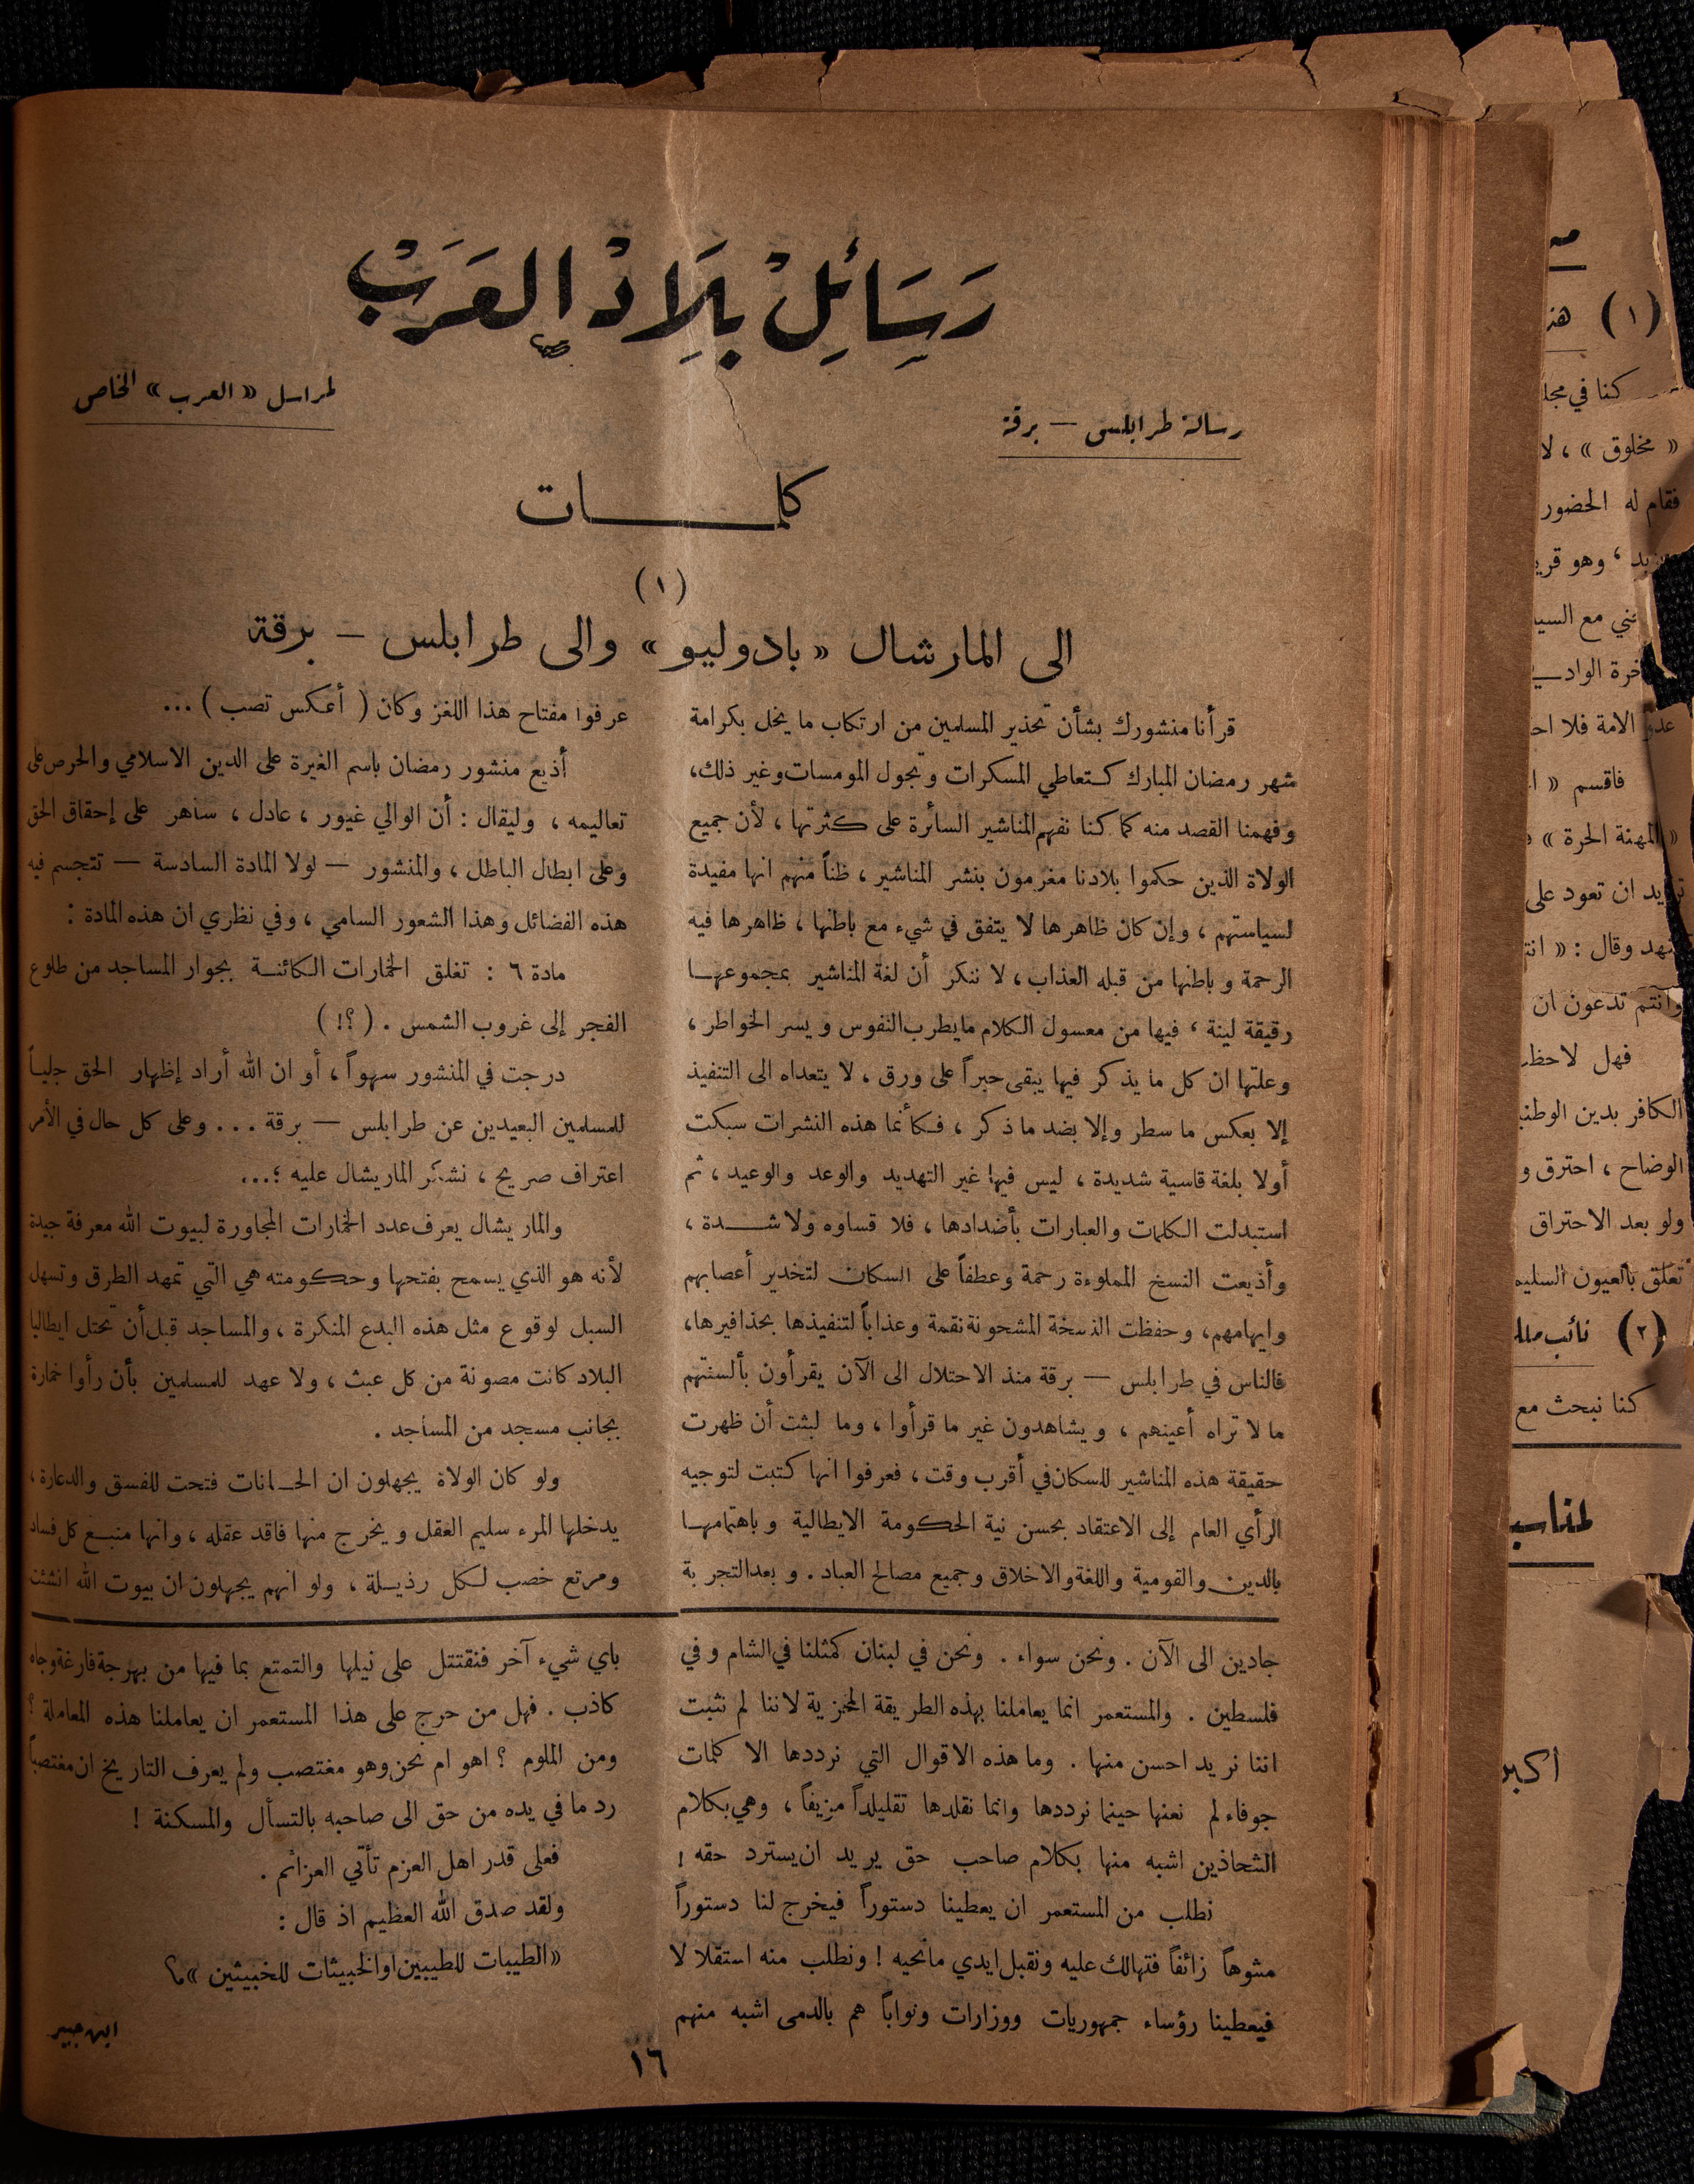 رَسَائِلْ بِلَادْ العَرَبْ
رسالة طرابلس — برقة
لمراسل « العرب » الخاص
كلمـــــات
( ١ )
الى المارشال « بادوليو » والى طرابلس — برقة
قرأنا منشورك بشأن تحذير المسلمين من ارتكاب ما يخل بكرامة
شهر رمضان المبارك كـتعاطي المسكرات وتجول المومسات وغير ذلك،
وفهمنا القصد منه كما كنا نفهم المناشير السائرة على كثرتها ، لأن جميع
الولاة الذين حكموا بلادنا مغرمون بنشر المناشير ، ظناً منهم انها مفيدة
لسياستهم ، وإن كان ظاهرها لا يتفق في شيء مع باطنها ، ظاهرها فيه
الرحمة وباطنها من قبله العذاب ، لا ننكر أن لغة المناشير بمجموعهـا
رقيقة لينة ، فيها من معسول الكلام مايطرب النفوس ويسر الخواطر ،
وعلتها ان كل ما يذكر فيها يبقى حبراً على ورق ، لا يتعداه الى التنفيذ
إلا بعكس ما سطر وإلا بضد ما ذكر ، فـكأنما هذه النشرات سبكت
أولا بلغة قاسية شديدة ، ليس فيها غير التهديد والوعد والوعيد ، ثم
استبدلت الكلمات والعبارات بأضدادها ، فلا قساوه ولا شـــدة ،
وأذيعت النسخ المملوءة رحمة وعطفاً على السكان لتخدير أعصابهم
وايهامهم، وحفظت النسخة المشحونة نقمة وعذاباً لتنفيذها بحذافيرها،
فالناس في طرابلس — برقة منذ الاحتلال الى الآن يقرأون بألسنتهم
ما لا تراه أعينهم ، ويشاهدون غير ما قرأوا ، وما لبثت أن ظهرت
حقيقة هذه المناشير للسكان في أقرب وقت ، فعرفوا انها كتبت لتوجيه
الرأي العام إلى الاعتقاد بحسن نية الحكومة الايطالية وباهتمامهـا
بالدين والقومية واللغة والاخلاق وجميع مصالح العباد . وبعد التجربة
عرفوا مفتاح هذا اللغز وكان ( أعكس تصب ) ...
أذيع منشور رمضان باسم الغيرة على الدين الاسلامي والحرص على
تعاليمه ، وليقال : أن الوالي غيور ، عادل ، ساهر على إحقاق الحق
وعلى ابطال الباطل ، والمنشور — لولا المادة السادسة — تتجسم فيه
هذه الفضائل وهذا الشعور السامي ، وفي نظري ان هذه المادة :
مادة ٦ : تغلق الخمارات الكائنـة بجوار المساجد من طلوع
الفجر إلى غروب الشمس . ( ؟! )
درجت في المنشور سهواً ، أو ان الله أراد إظهار الحق جليـاً
للمسلمين البعيدين عن طرابلس — برقة ... وعلى كل حال في الأمر
اعتراف صريح ، نشكر الماريشال عليه ؛...
والماريشال يعرف عدد الخمارات المجاورة لبيوت الله معرفة جيدة
لأنه هو الذي يسمح بفتحها وحكومته هي التي تمهد الطرق وتسهل
السبل لوقوع مثل هذه البدع المنكرة ، والمساجد قبل أن تحتل ايطاليا
البلاد كانت مصونة من كل عبث ، ولا عهد للمسلمين بأن رأوا خمارة
بجانب مسجد من المساجد .
ولو كان الولاة يجهلون ان الحـانات فتحت للفسق والدعارة ،
يدخلها المرء سليم العقل ويخرج منها فاقد عقله ، وانها منبـع كل فساد
ومرتع خصب لـكل رذيـلة ، ولو انهم يجهلون ان بيوت الله انشئت
جادين الى الآن . ونحن سواء . ونحن في لبنان كمثلنا في الشام وفي
فلسطين . والمستعمر انما يعاملنا بهذه الطريقة المخزية لاننا لم نثبت
اننا نريد احسن منها . وما هذه الاقوال التي نرددها الا كلمات
جوفاء لم نعنها حينما نرددها وانما نقلدها تقليلداً مزيفاً ، وهي بكلام
الشحاذين اشبه منها بكلام صاحب حق يريد ان يسترد حقه !
نطلب من المستعمر ان يعطينا دستوراً فيخرج لنا دستوراً
مشوهاً زائفاً فنتهالك عليه ونقبل ايدي مانحيه ! ونطلب منه استقلا لا
فيعطينا رؤساء جمهوريات ووزارات ونواباً هم بالدمى اشبه منهم
باي شيء آخر فنقتتل على نيلها والتمتع بما فيها من بهرجة فارغة وجاه
كاذب . فهل من حرج على هذا المستعمر ان يعاملنا هذه المعاملة ؟
ومن الملوم ؟ اهو ام نحن وهو مغتصب ولم يعرف التاريخ ان مغتصباً
رد ما في يده من حق الى صاحبه بالتسأل والمسكنة !
فعلى قدر اهل العزم تأتي العزائم .
ولقد صدق الله العظيم اذ قال :
«الطيبات للطيبين او الخبيثات للخبيثين » م؟
ابن جبير
١٦
( ١ ) هنـ
كنا في مجلـ
« مخلوق » ، لا
فقام له الحضور
وهو قريـ
ـني مع السيـ
ـخرة الواديـ
عدو الامة فلا احـ
فاقسم « ا
« المهنة الحرة »
تريد ان تعود على
وقال : « انتـ
وانتم تدعون ان
فهل لاحظـ
الكافر بدين الوطنيـ
الوضاح ، احترق و
ولو بعد الاحتراق
تعلق بالعيون السليمـ
( ٢ ) نائب
كنا نبحث مع
لمناسبـ
أكبر